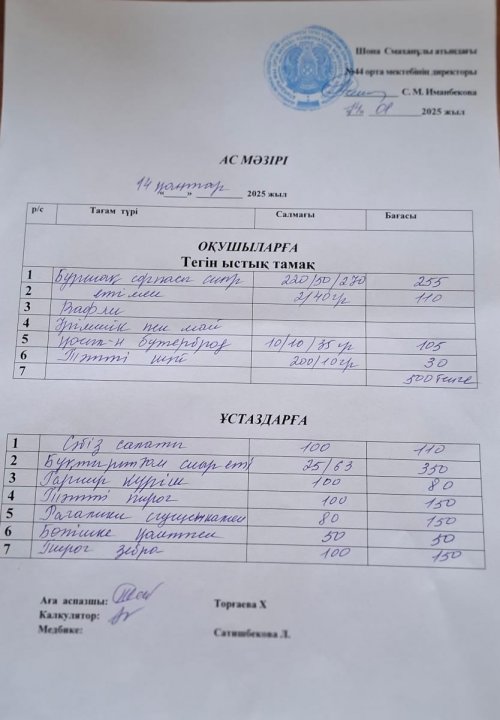 Шона Смаханұлы атындағы
№44 орта мектебінің директоры
С. М. Иманбекова
14 01 2025 жыл
АС МӘЗІРІ
14 қаңтар 2025 жыл
р/с Тағам түрі Салмағы Бағасы
ОҚУШЫЛАРҒА
Тегін ыстық тамақ
1 Бұршақ сорпасы сиыр 220/50/270 255
2 етімен 2/40гр 110
3 Вафли
4 Ірімшік пен май
5 қосылған бутерброд 10/10/35гр 105
6 Тәтті шай 200/10гр 30
7 500 теңге
ҰСТАЗДАРҒА
1 Сәбіз салаты 100 110
2 Бұқтырылған сиыр еті 25/63 350
3 Гарнир күріш 100 80
4 Тәтті пирог 100 150
5 Рагалики 80 150
6 Бөтішке 50 50
7 Пирог зебра 100 150
Аға аспазшы: Торғаева Х
Калкулятор:
Медбике: Сатишбекова Л.